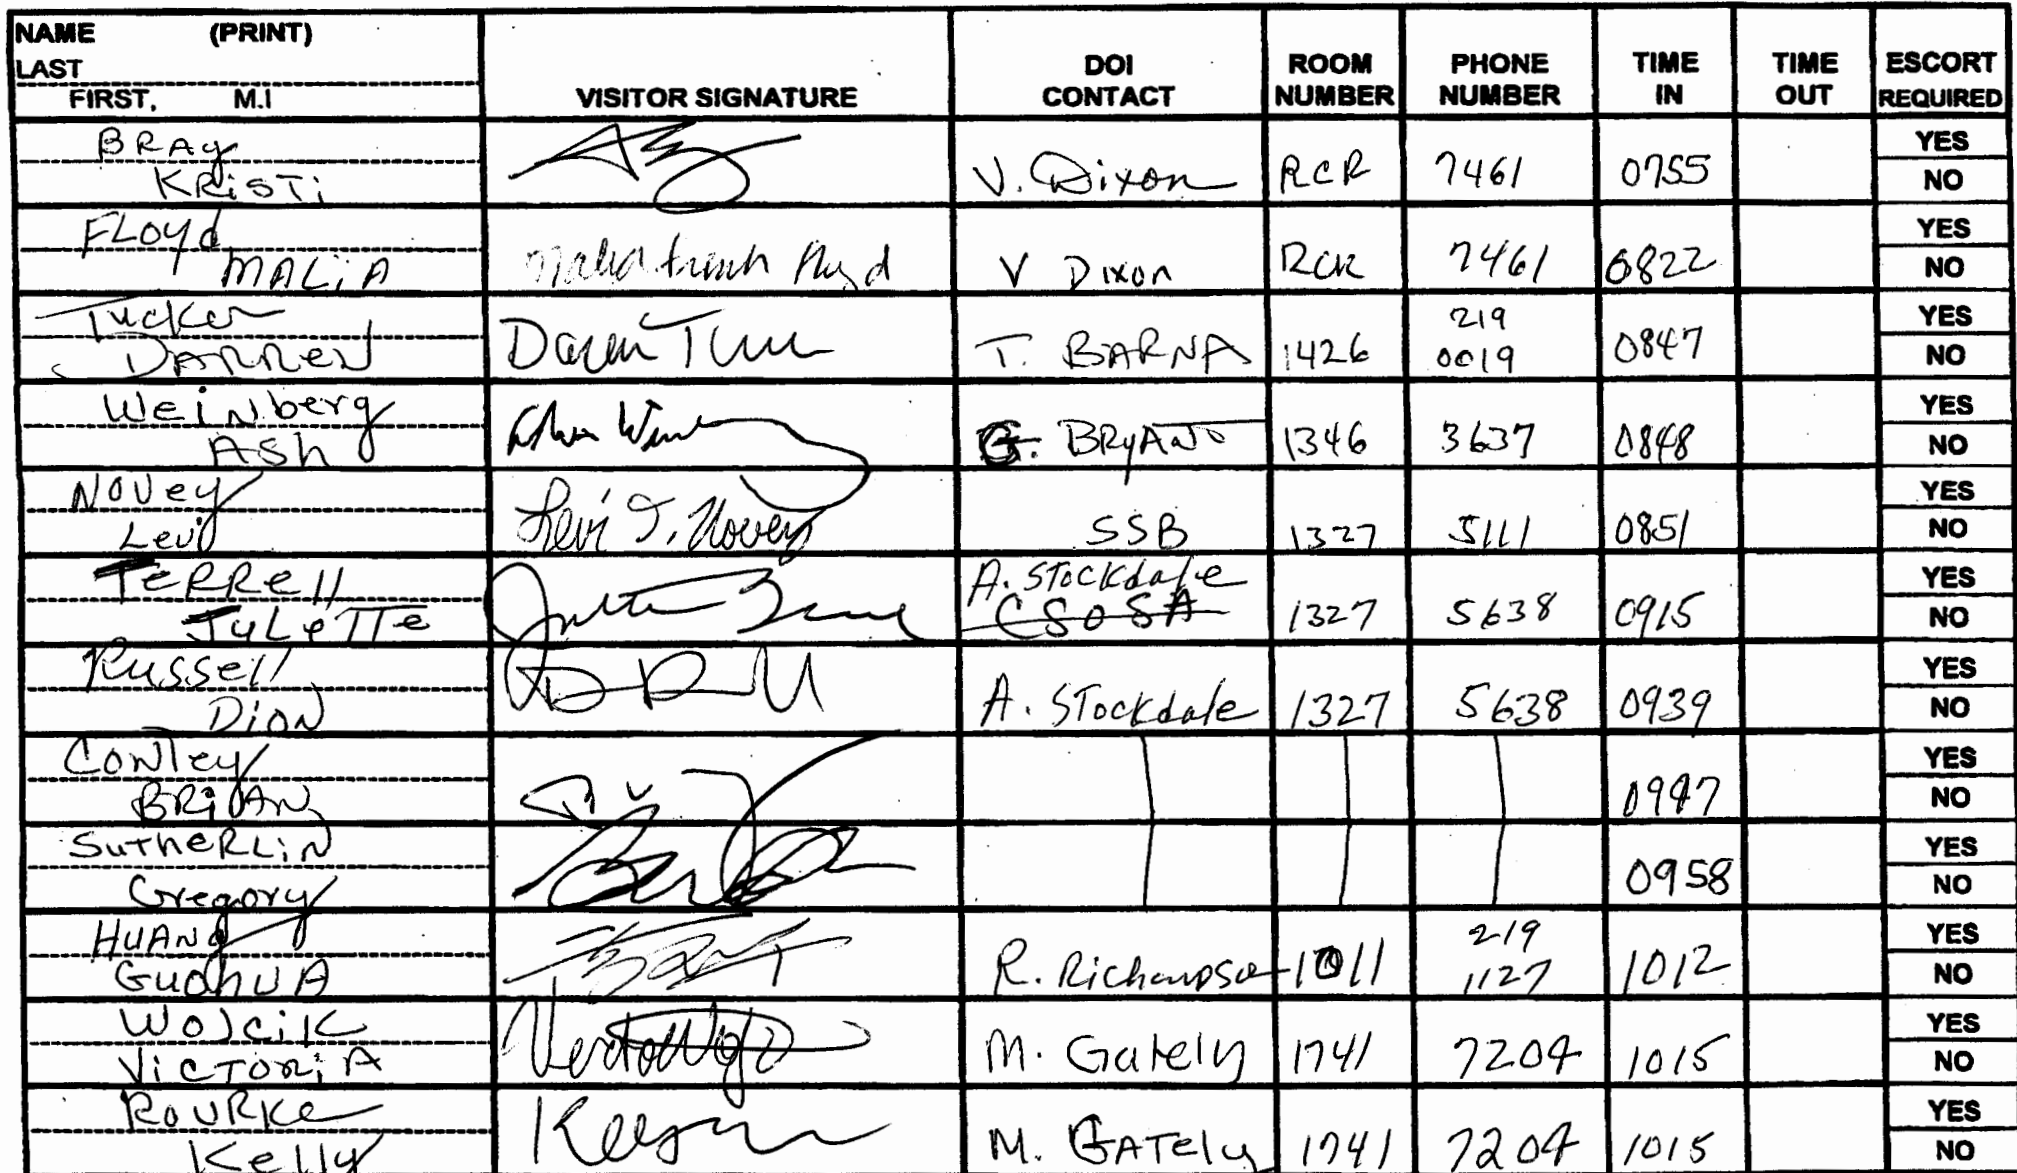 NAME (PRINT)
LAST
FIRST, M.I
VISITOR SIGNATURE
DOI CONTACT
ROOM NUMBER
PHONE NUMBER
TIME IN
TIME OUT
ESCORT REQUIRED
BRAy
KRiSTi
V. Dixon RCR 7461 0755
YES
NO
FLOyd
MALiA
V Dixon RCR 7461 0822
YES
NO
Tucker
DARREN
Daren
T. BARNA 1426 219 0019 0847
YES
NO
WeiNberg
ASh
G. BRyANT 1346 3637 0848
YES
NO
NOVey
Levi
Levi T. Novey
SSB 1327 5111 0851
YES
NO
TeRRell
JuLeTTe
A. STockdale
CSOSA
1327 5638 0915
YES
NO
Russell
DioN
A. STockdale 1327 5638 0939
YES
NO
CoNley
BRiAN
0947
YES
NO
SuTheRLiN
Gregory
0958
YES
NO
HUANg
GuohuA
R. Richardson 1011 219 1127 1012
YES
NO
WOJciK
VicToRiA
M. Gately 1741 7204 1015
YES
NO
ROURKe
Kelly
M. GATely 1741 7204 1015
YES
NO